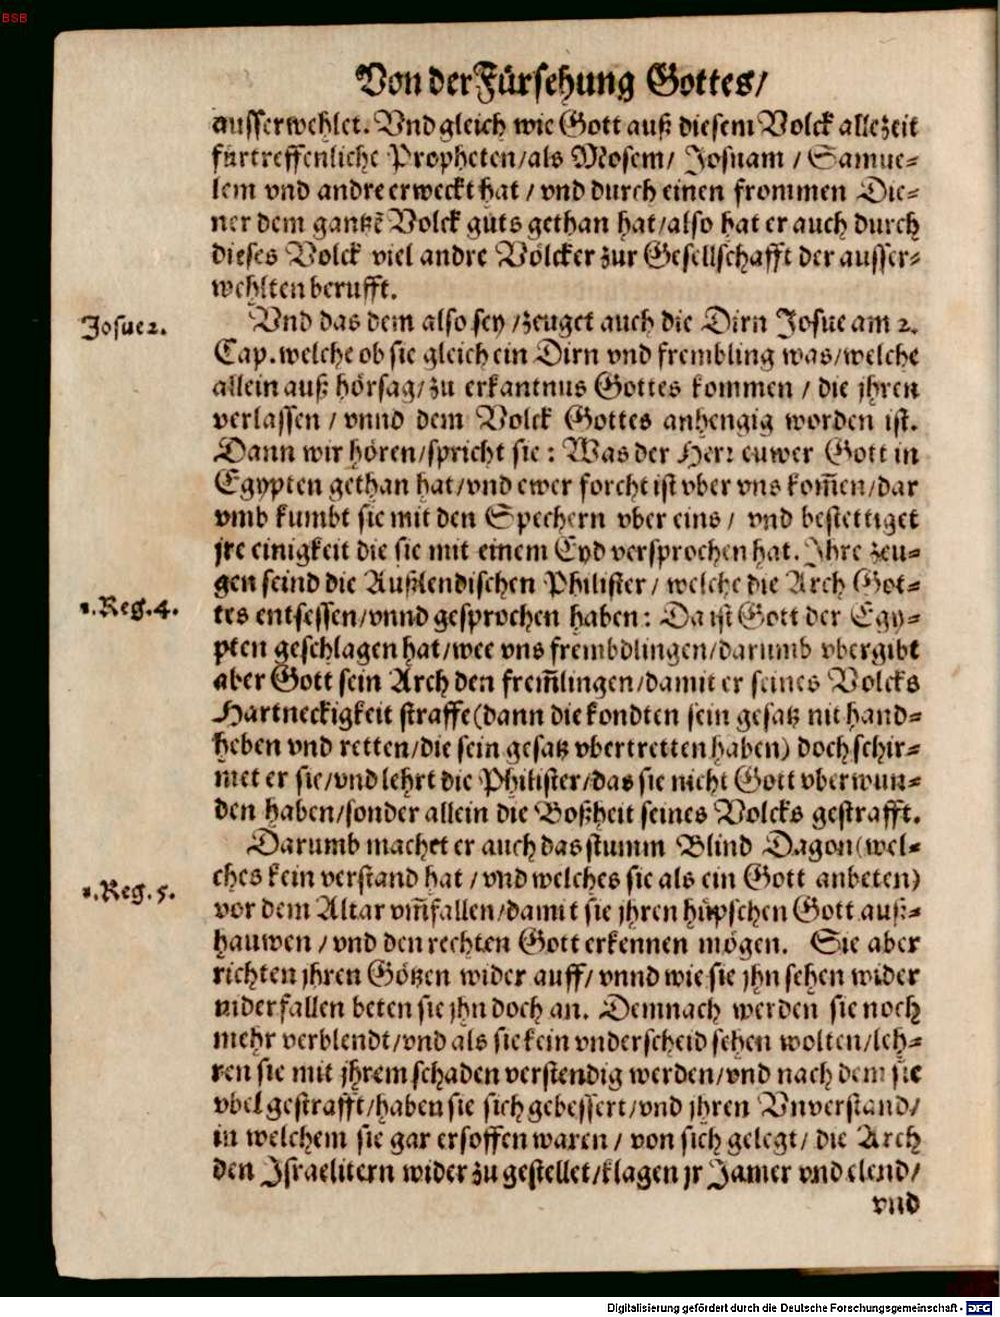 BSB
Von der Fürsehung Gottes/
ausserwehlet. Vnd gleich wie Gott auß diesem Volck allezeit
fürtreffenliche Propheten/als Mosem/ Josuam / Samue-
lem vnd andre erweckt hat / vnd durch einen frommen Die-
ner dem gantzē Volck guts gethan hat/also hat er auch durch
dieses Volck viel andre Völcker zur Gesellschafft der ausser-
wehlten berufft.
Josue 2.
Vnd das dem also sey /zeuget auch die Dirn Josue am 2.
Cap. welche ob sie gleich ein Dirn vnd frembling was/welche
allein auß hörsag/zu erkantnus Gottes kommen / die jhren
verlassen / vnnd dem Volck Gottes anhengig worden ist.
Dann wir hören/spricht sie : Was der Herr euwer Gott in
Egypten gethan hat/vnd ewer forcht ist vber vns kom̃en/dar
vmb kumbt sie mit den Spechern vber eins / vnd bestettiget
jre einigkeit die sie mit einem Eyd versprochen hat. Ihre zeu-
gen seind die Außlendischen Philister / welche die Arch Got-
1. Reg. 4.
tes entsessen/vnnd gesprochen haben : Da ist Gott der Egy-
pten geschlagen hat/wee vns frembdlingen/darumb vbergibt
aber Gott sein Arch den frem̃lingen/damit er seines Volcks
Hartneckigkeit straffe(dann die kondten sein gesatz nit hand-
heben vnd retten/die sein gesatz vbertretten haben) doch schir-
met er sie/vnd lehrt die Philister/das sie nicht Gott vberwun-
den haben/sonder allein die Boßheit seines Volcks gestrafft.
Darumb machet er auch das stumm Blind Dagon(wel-
1. Reg. 5.
ches kein verstand hat / vnd welches sie als ein Gott anbeten)
vor dem Altar vm̃fallen/damit sie jhren hüpschen Gott auß-
hauwen / vnd den rechten Gott erkennen mögen. Sie aber
richten jhren Götzen wider auff/ vnnd wie sie jhn sehen wider
niderfallen beten sie jhn doch an. Demnach werden sie noch
mehr verblendt/vnd als sie kein vnderscheid sehen wolten/leh-
ren sie mit jhrem schaden verstendig werden/vnd nach dem sie
vbel gestrafft/haben sie sich gebessert/vnd jhren Vnverstand/
in welchem sie gar ersoffen waren / von sich gelegt/ die Arch
den Israelitern wider zu gestellet/klagen jr Jamer vnd elend/
vnd
Digitalisierung gefördert durch die Deutsche Forschungsgemeinschaft - DFG